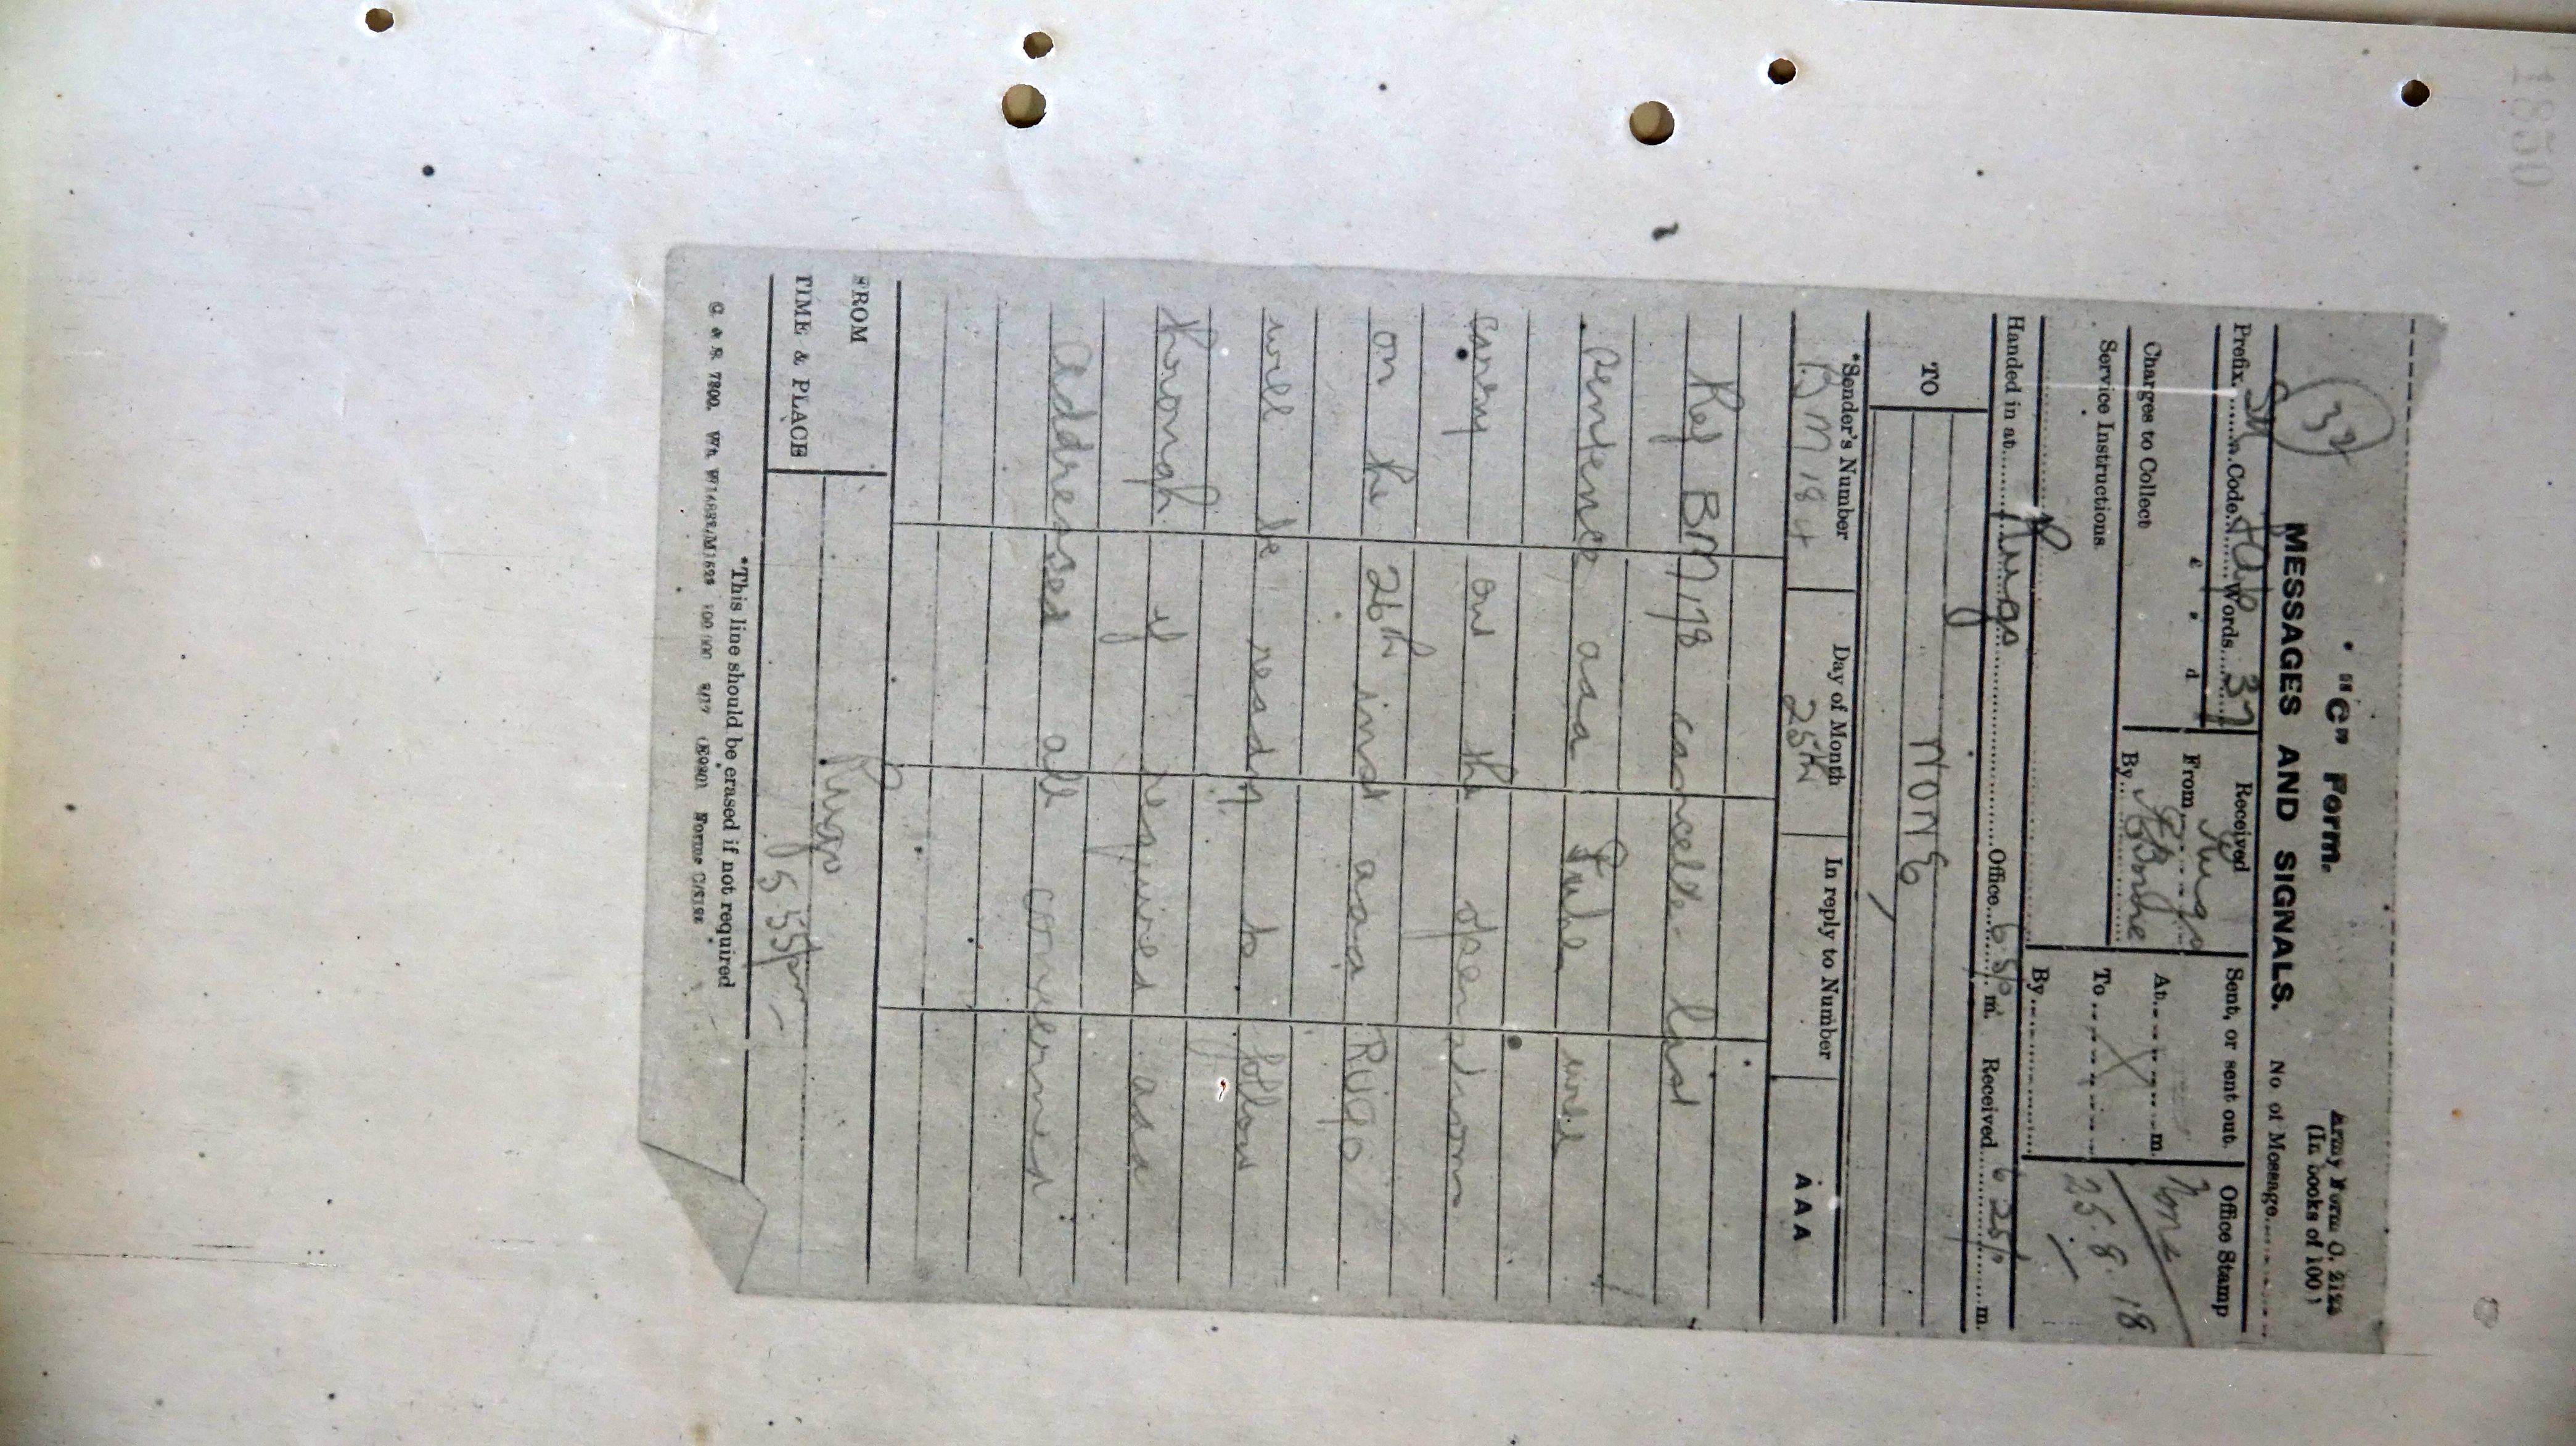 1850
32
"C" Form.
Army Form C. 2123
(In books of 100)
MESSAGES AND SIGNALS.
No of Message
Prefix SM Code Words 37
Received
Sent, or sent out.
Office Stamp
£ s d
From Rugo
At m.
Charges to Collect
By
To
25.8.18
Service Instructions
By
Handed in at Rugo Office 6 5p m. Received 6 25p m.
TO
NONE
*Sender's Number
Day of Month
In reply to Number
AAA
BM 184
25th
Ref BM 178 cancelled last
sentence aaa Fuhe will
carry out the operations
on the 26th inst aaa RUGO
will be ready to follow
through if required aaa
addressed all concerned
FROM
TIME & PLACE
Rugo
5 55pm
*This line should be erased if not required